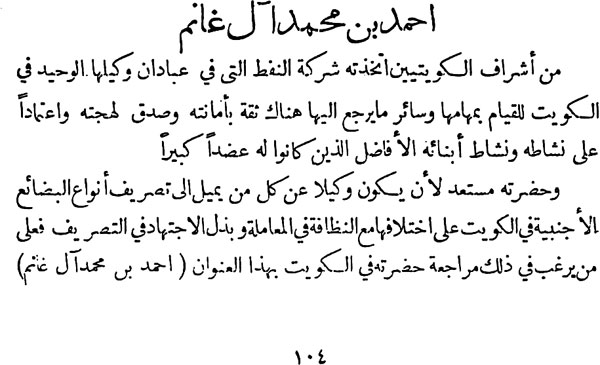 احمد بن محمد آل غانم
من أشراف الكويتيين اتخذته شركة النفط التى في عبادان وكيلها الوحيد في
الكويت للقيام بمهامها وسائر مايرجع اليها هناك ثقة بأمانته وصدق لهجته واعتماداً
على نشاطه ونشاط أبنائه الأفاضل الذين كانوا له عضداً كبيراً
وحضرته مستعد لأن يكون وكيلا عن كل من يميل الى تصريف أنواع البضائع
الأجنبية في الكويت على اختلافها مع النظافة في المعاملة وبذل الاجتهاد في التصريف فعلى
من يرغب في ذلك مراجعة حضرته في الكويت بهذا العنوان (احمد بن محمد آل غانم)
١٠٤